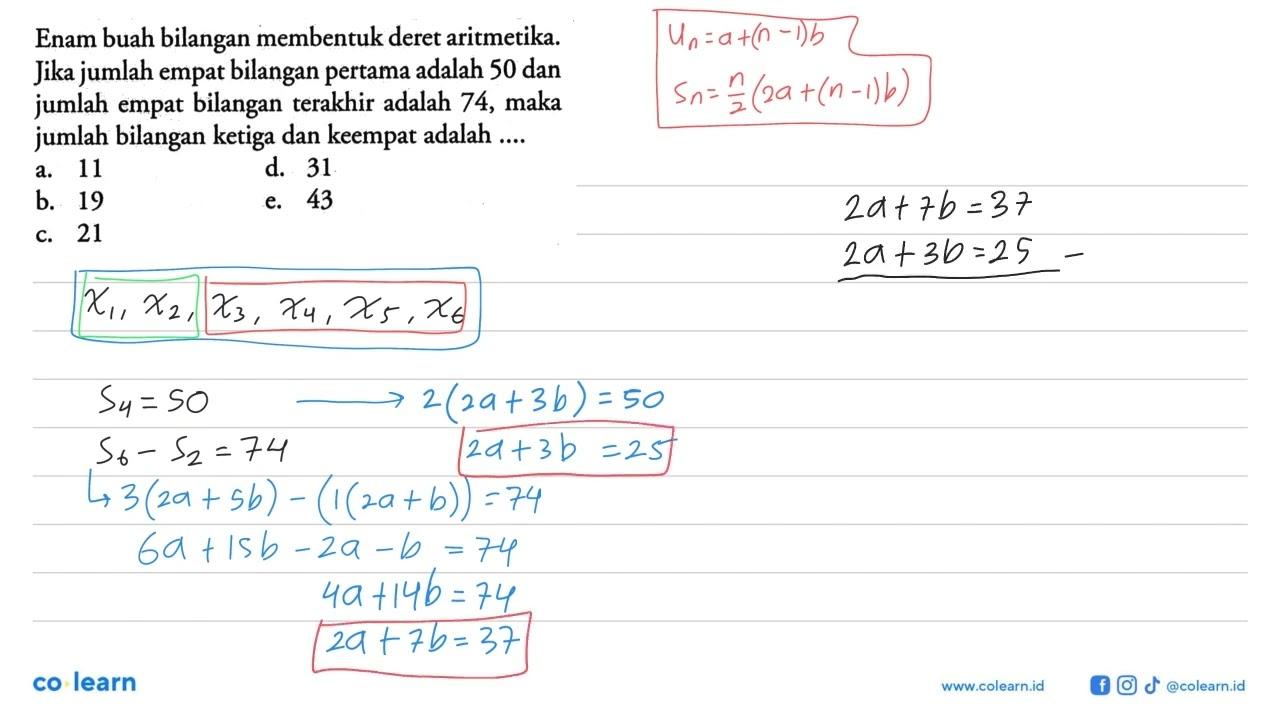 Enam buah bilangan membentuk deret aritmetika.
Jika jumlah empat bilangan pertama adalah 50 dan
jumlah empat bilangan terakhir adalah 74, maka
jumlah bilangan ketiga dan keempat adalah ....
a. 11 d. 31
b. 19 e. 43
c. 21
Uₙ = a + (n - 1)b
Sₙ = n/2 (2a + (n - 1)b)
2a + 7b = 37
2a + 3b = 25 -
x₁, x₂, x₃, x₄, x₅, x₆
S₄ = 50 → 2(2a + 3b) = 50
S₆ - S₂ = 74 2a + 3b = 25
↳ 3(2a + 5b) - (1(2a + b)) = 74
6a + 15b - 2a - b = 74
4a + 14b = 74
2a + 7b = 37
co learn
www.colearn.id @colearn.id